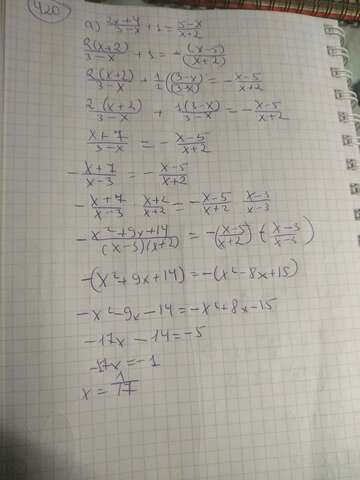 420
а) (2x+4)/(3-x) + 1 = (5-x)/(x+2)
2(x+2)/(3-x) + 1 = -(x-5)/(x+2)
2(x+2)/(3-x) + 1/1 (3-x)/(3-x) = -(x-5)/(x+2)
2(x+2)/(3-x) + 1(3-x)/(3-x) = -(x-5)/(x+2)
(x+7)/(3-x) = -(x-5)/(x+2)
-(x+7)/(x-3) = -(x-5)/(x+2)
-(x+7)/(x-3) (x+2)/(x+2) = -(x-5)/(x+2) (x-3)/(x-3)
-(x²+9x+14)/((x-3)(x+2)) = -((x-5)/(x+2)) · ((x-3)/(x-3))
-(x²+9x+14) = -(x²-8x+15)
-x²-9x-14 = -x²+8x-15
-17x-14 = -5
-17x = -1
x = 1/17